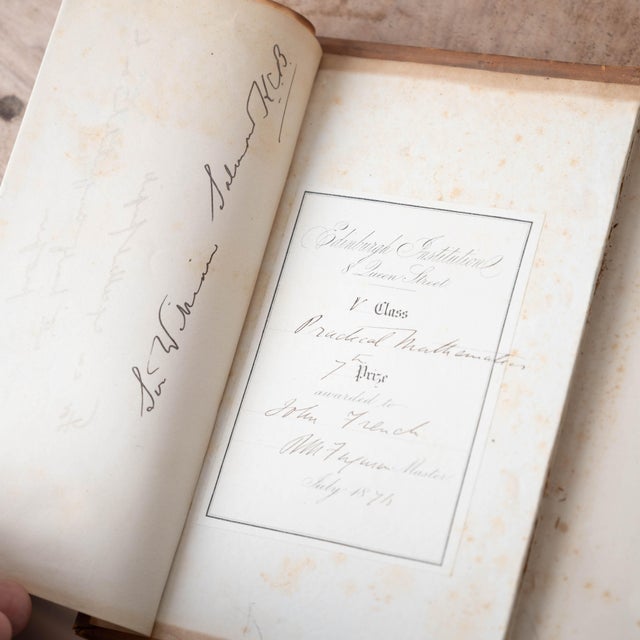 Sir William Salmon K.C.B
Edinburgh Institution
8 Queen Street
V Class
Practical Mathematics
7th Prize
awarded to
John French
Ferguson Master
July 187